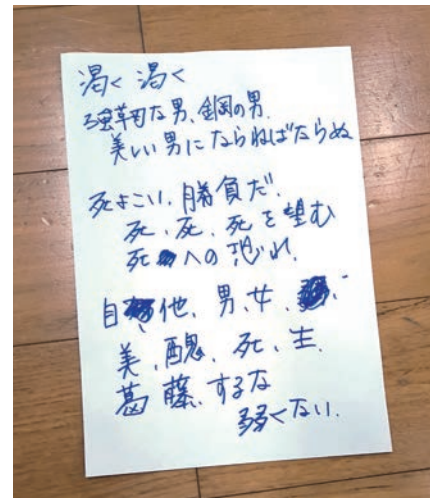 渇く 渇く
強靭な男、鋼の男、
美しい男にならねばならぬ
死よこい、勝負だ、
死、死、死を望む
死への恐れ、
自、他、男、女、
美、醜、死、生、
葛藤、するな
弱くない、